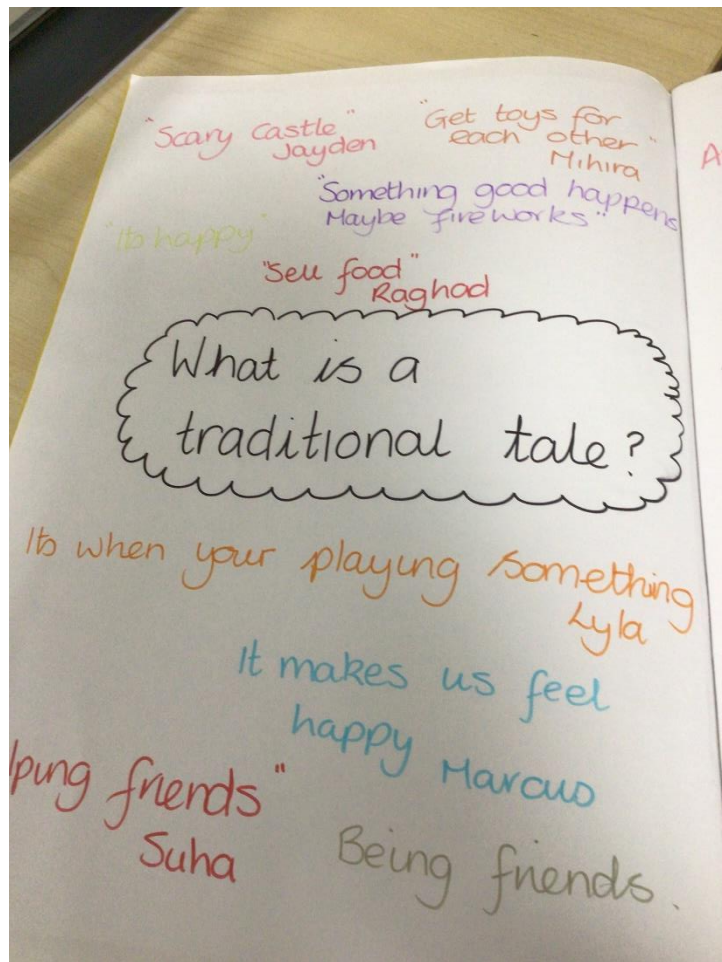 "Scary Castle"
Jayden
"Get toys for
each other"
Mihira
"Something good happens
Maybe fireworks"
"Its happy"
"Sell food"
Raghad
What is a
traditional tale?
Its when your playing something
Lyla
It makes us feel
happy Marcus
lping friends"
Suha
Being friends.
A